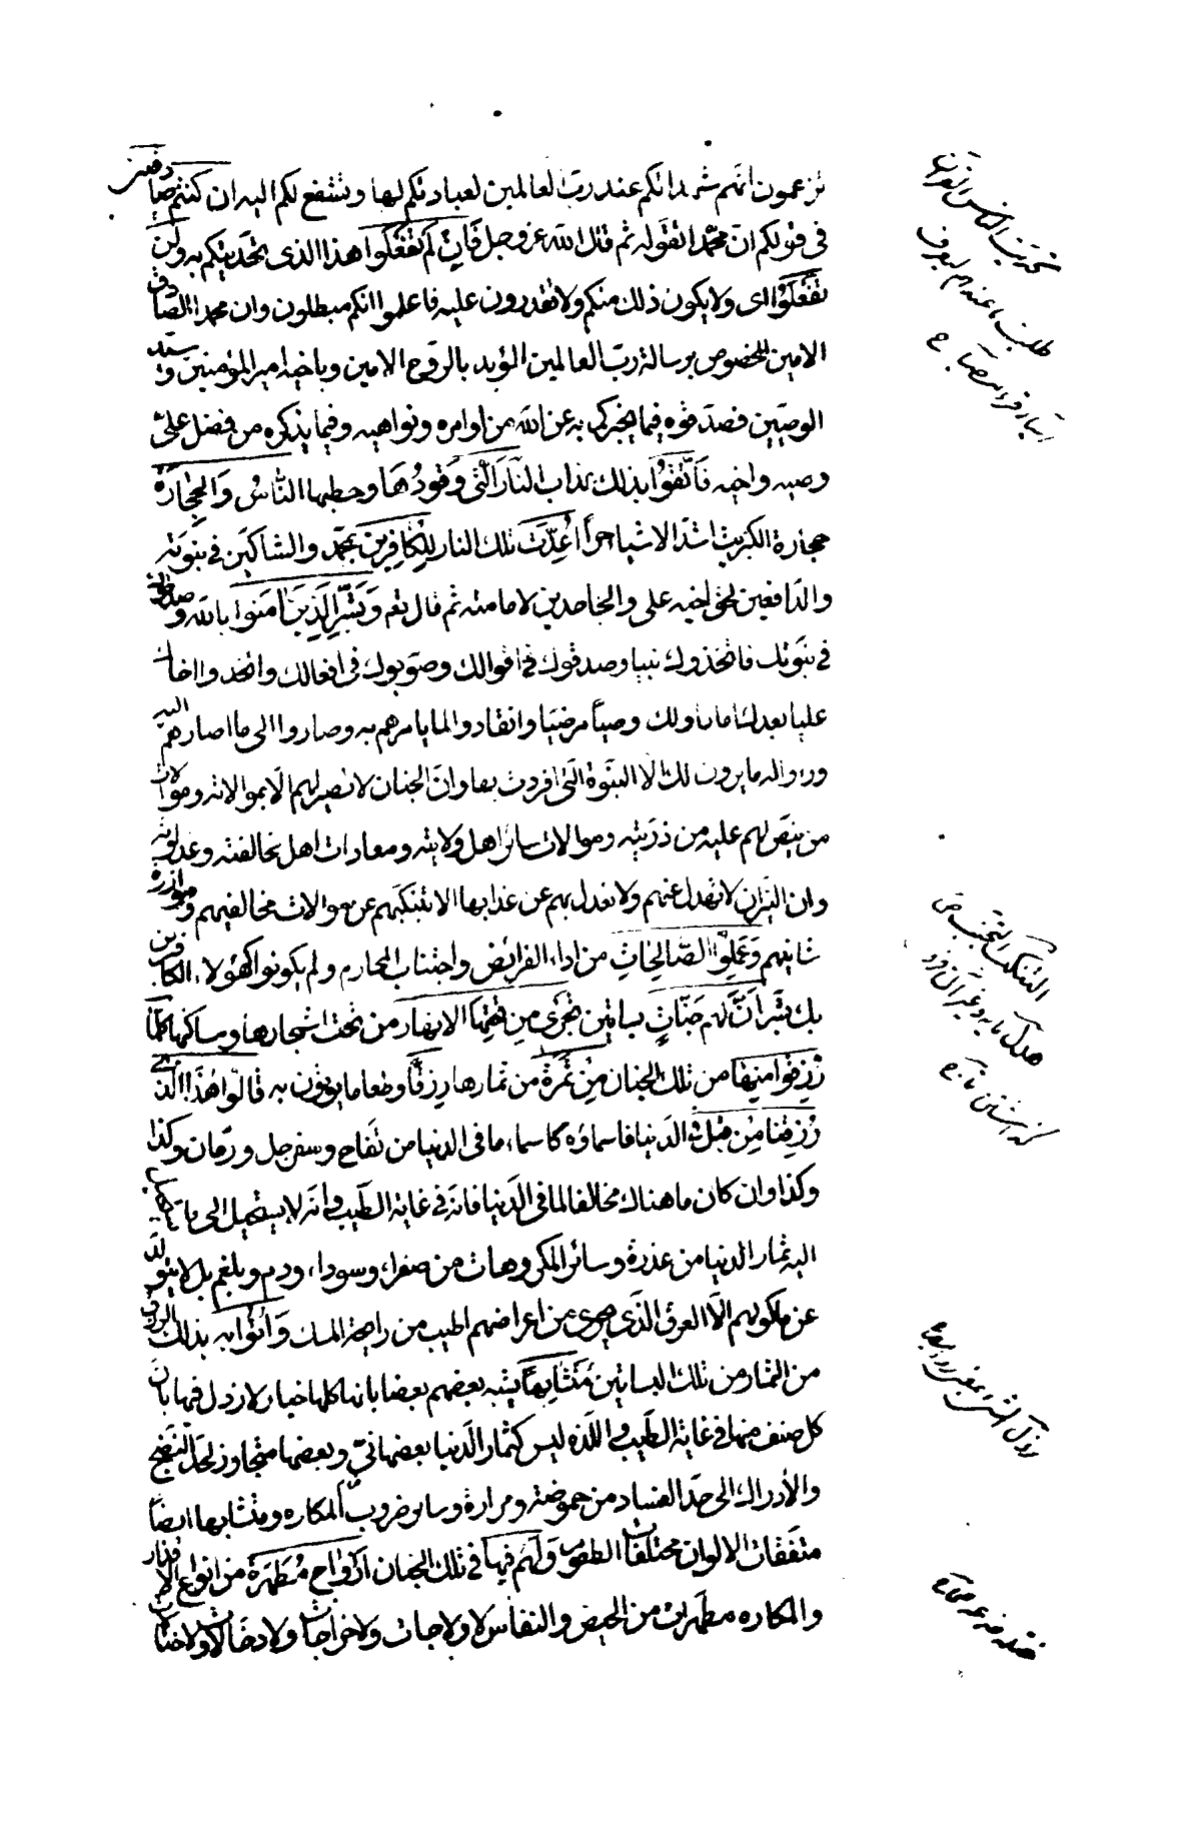 تزعمون انهم شهدائكم عند رب العالمين لعبادتكم لها وتشفع لكم اليه ان كنتم صادقين
فى قولكم ان محمدا تقوله ثم قال الله عز وجل فَاِن لَم تَفعَلُوا هذا الذى تحديتكم به وَلَن
تَفعَلُوا اى ولا يكون ذلك منكم ولا تقدرون عليه فاعلموا انكم مبطلون وان محمدا الصادق
الامين المخصوص برسالة رب العالمين المؤيد بالروح الامين وباخيه امير المؤمنين وسيد
الوصيين فصدقوه فيما يخبركم به عن الله من اوامره ونواهيه وفيما يذكره من فضل على
وصيه واخيه فَاتَّقُوا بذلك عذاب النَّارَ الَّتى وَقُودُهَا وحطبها النَّاسُ وَالحِجَارَةُ
حجارة الكبريت اشد الاشياء حرا اُعِدَّت تلك النار لِلكَافِرينَ بمحمد والشاكين فى نبوته
والدافعين لحق اخيه على والجاحدين لامامته ثم قال تعم وَبَشِّرِ الَّذِينَ آمَنُوا بالله وصدقوك
فى نبوتك فاتخذوك نبيا وصدقوك فى اقوالك وصوبوك فى افعالك واتخذوا اخاك
عليا بعدك اماما ولك وصيا مرضيا وانقادوا لما يامرهم به وصاروا الى ما اصارهم اليه
ورأوا له ما يرون لك الا النبوة التى افردت بها وان الجنان لا تصير لهم الا بموالاته وموالات
من ينص لهم عليه من ذريته وموالات سائر اهل ولايته ومعادات اهل مخالفته وعداوته
وان النيران لا تهدا عنهم ولا تعدل بهم عن عذابها الا بتنكبهم عن موالات مخالفيهم وموازرة
شانئيهم وَعَمِلُوا الصَّالِحَاتِ من اداء الفرائض واجتناب المحارم ولم يكونوا كهؤلاء الكافرين
بك بشر اَنَّ لَهُم جَنَّاتٍ بساتين تَجرى مِن تَحتِهَا الانهار من تحت اشجارها ومساكنها كُلَّمَا
رُزِقوا مِنهَا من تلك الجنان مِن ثَمَرَةٍ من ثمارها رِزقًا وطعاما يؤتون به قالُوا هٰذَا الَّذى
رُزِقنَا مِن قَبلُ فى الدنيا فاسماؤه كاسماء ما فى الدنيا من تفاح وسفرجل ورمان وكذا
وكذا وان كان ما هناك مخالفا لما فى الدنيا فانه فى غاية الطيب وانه لا يستحيل الى ما يستحيل
اليه ثمار الدنيا من عذرة وسائر المكروهات من صفراء وسوداء ودم وبلغم بل لا يتولد
عن ماكولهم الا العرق الذى يجرى من اعراضهم اطيب من رايحة المسك وَاُتُوا بِه بذلك الرزق
من الثمار من تلك البساتين مُتَشَابِهًا يشبه بعضهم بعضا بانها كلها خيار لا رذل فيها بان
كل صنف منها فى غاية الطيب واللذة ليس كثمار الدنيا بعضها نى وبعضها متجاوز لحد النضج
والادراك الى حد الفساد من حموضة ومرارة وسائر ضروب المكاره ومتشابها ايضا
متفقات الالوان مختلفات الطعوم وَلَهُم فِيهَا فى تلك الجنان اَزوَاجٌ مُطَهَّرَةٌ من انواع الاقذار
والمكاره مطهرات من الحيض والنفاس لا ولاجات ولا خراجات ولا دخالات ولا ختالات